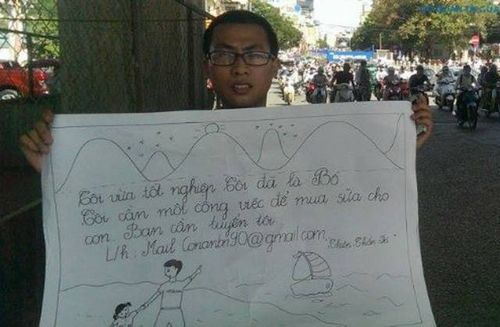 Tôi vừa tốt nghiệp Tôi đã là Bố
Tôi cần một công việc để mua sữa cho
con Bạn cần tuyển tôi.
L/h: Mail Conanbn90@gmail.com